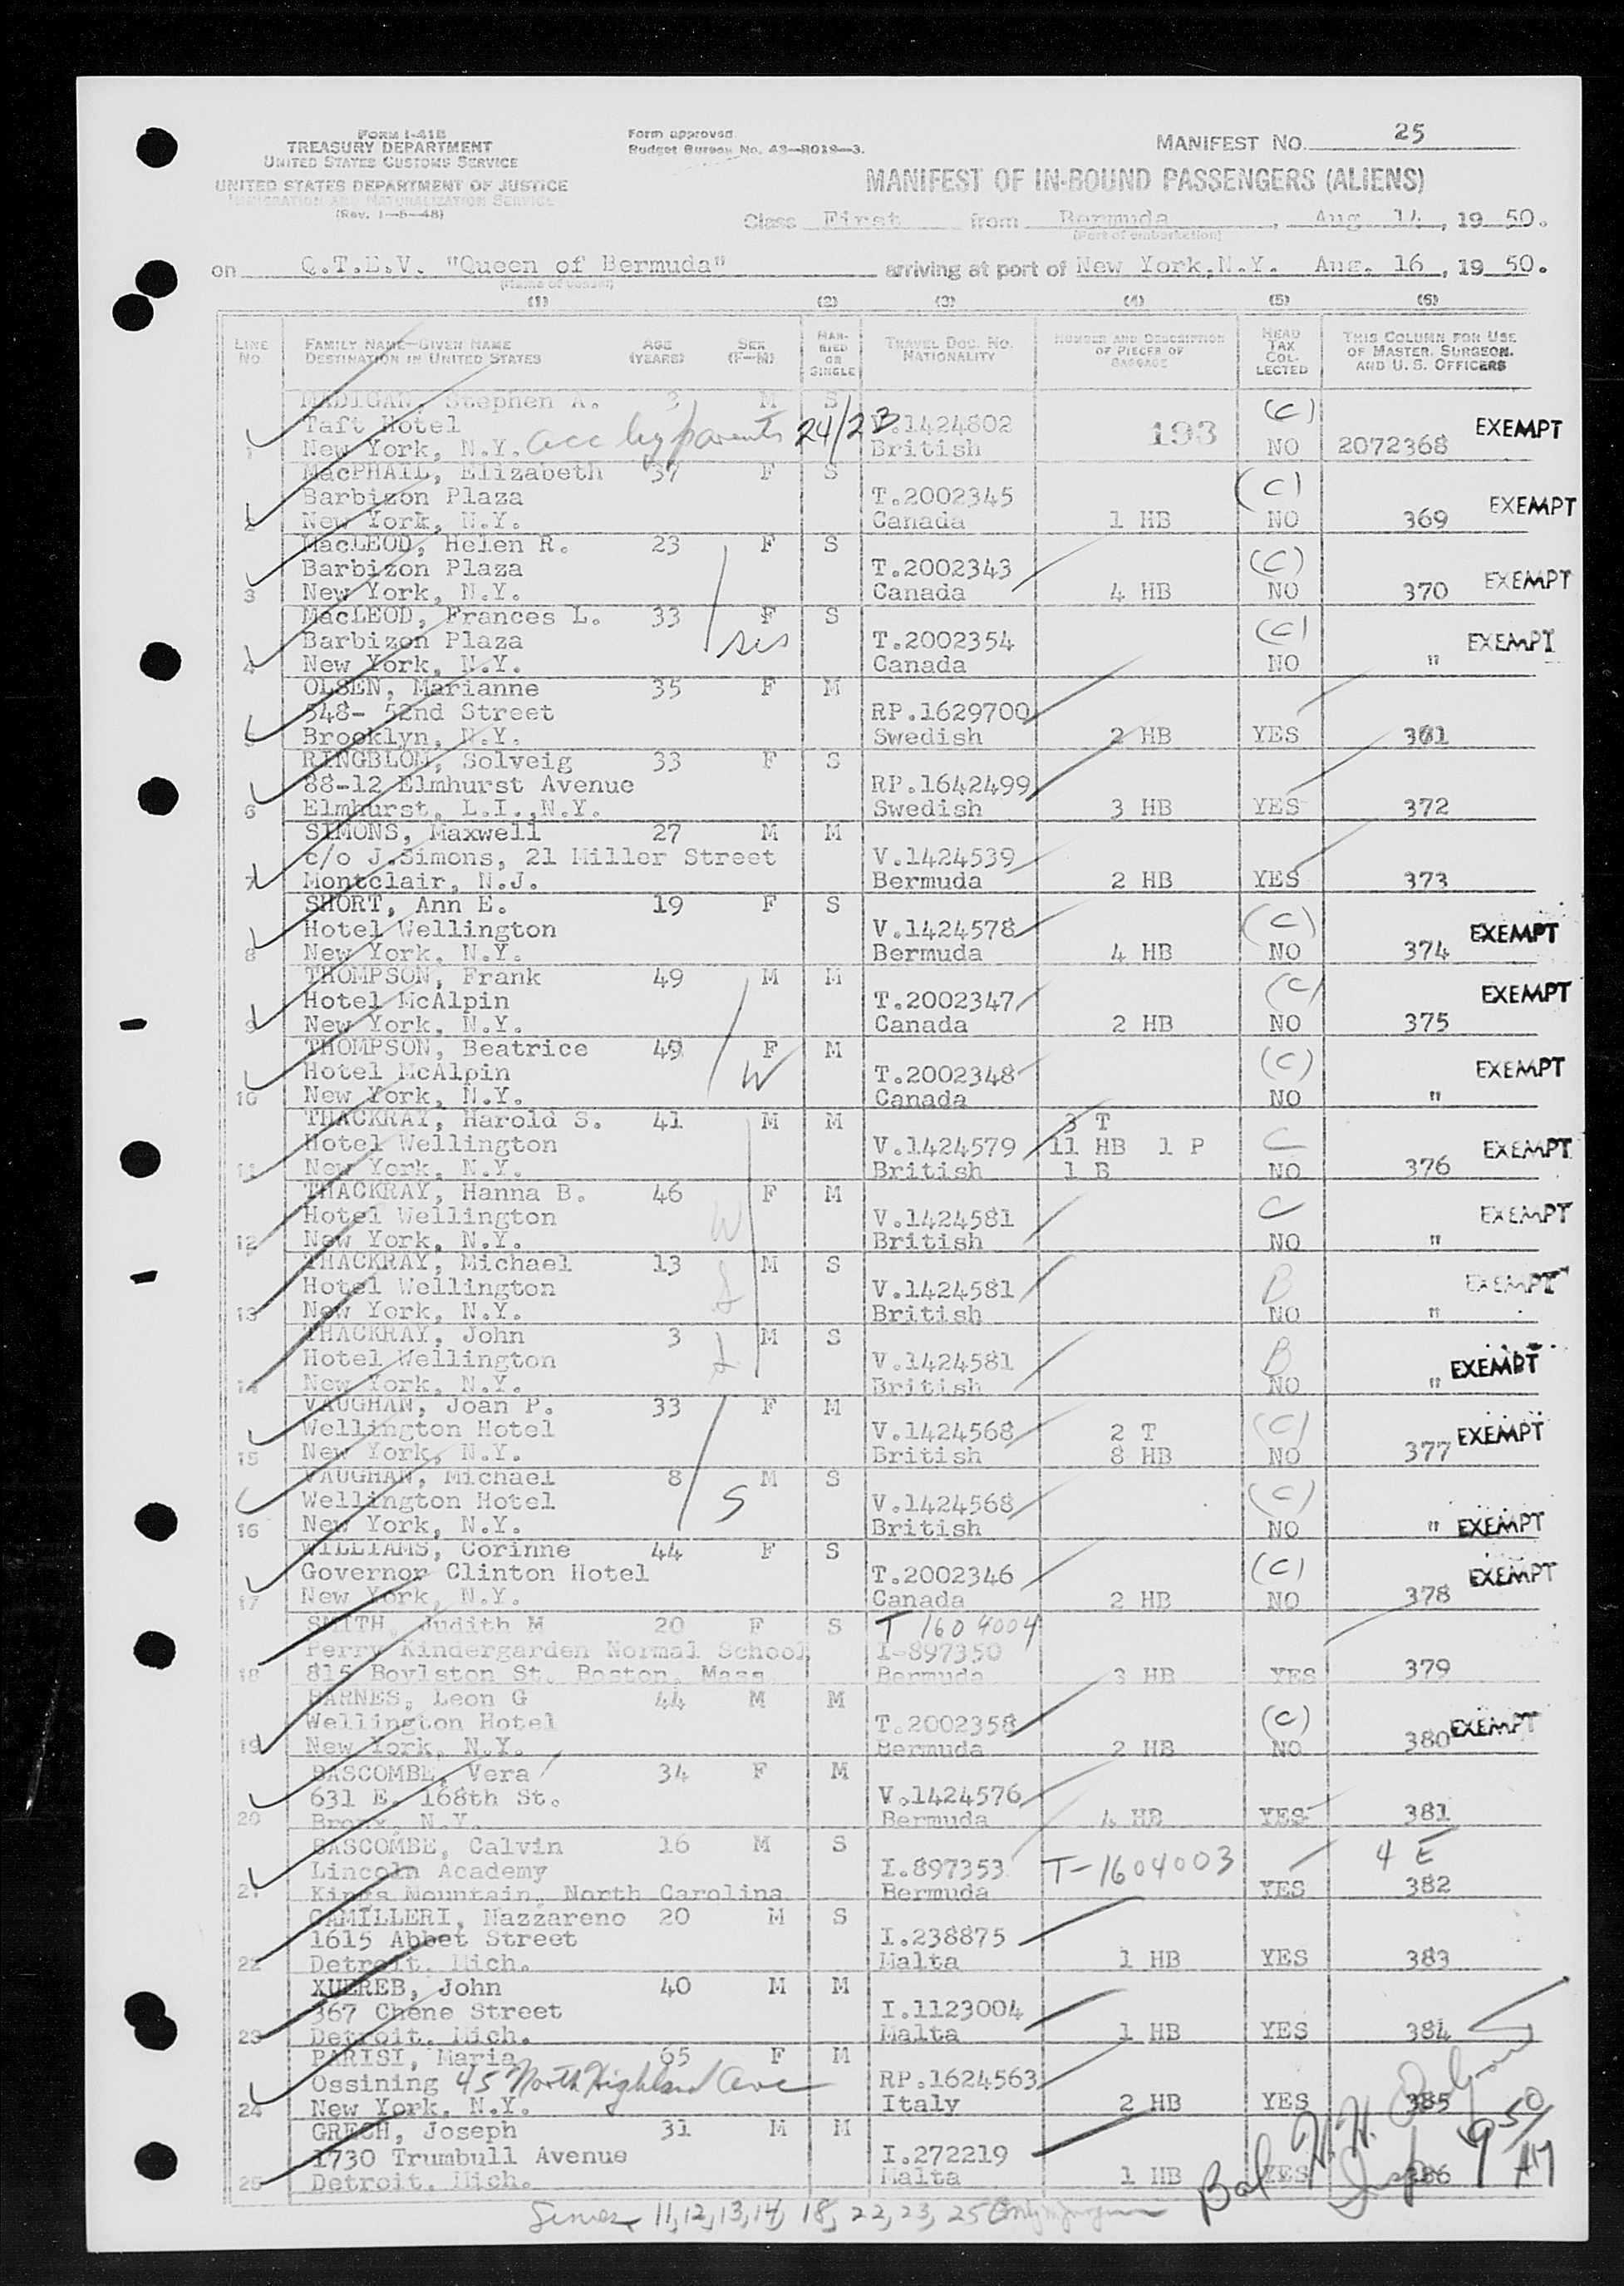 FORM I-418
TREASURY DEPARTMENT
UNITED STATES CUSTOMS SERVICE
UNITED STATES DEPARTMENT OF JUSTICE
IMMIGRATION AND NATURALIZATION SERVICE
(Rev. 1-5-48)
Form approved.
Budget Bureau No. 43-R019-3.
MANIFEST NO. 25
MANIFEST OF IN-BOUND PASSENGERS (ALIENS)
Class First from Bermuda, Aug 14, 19 50.
(Port of embarkation)
on Q.T.E.V. "Queen of Bermuda" arriving at port of New York, N.Y. Aug. 16, 19 50.
(Name of vessel)
(1) (2) (3) (4) (5) (6)
LINE NO. FAMILY NAME-GIVEN NAME DESTINATION IN UNITED STATES AGE (YEARS) SEX (F-M) MARRIED OR SINGLE TRAVEL DOC. NO. NATIONALITY NUMBER AND DESCRIPTION OF PIECES OF BAGGAGE HEAD TAX COLLECTED THIS COLUMN FOR USE OF MASTER, SURGEON, AND U. S. OFFICERS
MADIGAN, Stephen A. 3 M S (C)
Taft Hotel V.1424802 193 EXEMPT
1 New York, N.Y. acc by parents 24/23 British NO 2072368
MacPHAIL, Elizabeth 37 F S (C)
Barbizon Plaza T.2002345 EXEMPT
2 New York, N.Y. Canada 1 HB NO 369
MacLEOD, Helen R. 23 F S (C)
Barbizon Plaza T.2002343 EXEMPT
3 New York, N.Y. Canada 4 HB NO 370
MacLEOD, Frances L. 33 F S (C)
Barbizon Plaza sis T.2002354 EXEMPT
4 New York, N.Y. Canada NO "
OLSEN, Marianne 35 F M
548- 52nd Street RP.1629700
5 Brooklyn, N.Y. Swedish 2 HB YES
RINGBLOM, Solveig 33 F S
88-12 Elmhurst Avenue RP.1642499
6 Elmhurst, L.I.,N.Y. Swedish 3 HB YES 372
SIMONS, Maxwell 27 M M
c/o J.Simons, 21 Miller Street V.1424539
7 Montclair, N.J. Bermuda 2 HB YES 373
SHORT, Ann E. 19 F S (C)
Hotel Wellington V.1424578 EXEMPT
8 New York, N.Y. Bermuda 4 HB NO 374
THOMPSON, Frank 49 M M (C)
Hotel McAlpin T.2002347 EXEMPT
9 New York, N.Y. Canada 2 HB NO 375
THOMPSON, Beatrice 49 F M (C)
Hotel McAlpin W T.2002348 EXEMPT
10 New York, N.Y. Canada NO "
THACKRAY, Harold S. 41 M M 3 T
Hotel Wellington V.1424579 11 HB 1 P C EXEMPT
11 New York, N.Y. British 1 B NO 376
THACKRAY, Hanna B. 46 F M C
Hotel Wellington W V.1424581 EXEMPT
12 New York, N.Y. British NO "
THACKRAY, Michael 13 M S B
Hotel Wellington S V.1424581 EXEMPT
13 New York, N.Y. British NO "
THACKRAY, John 3 M S B
Hotel Wellington S V.1424581 EXEMPT
14 New York, N.Y. British NO "
VAUGHAN, Joan P. 33 F M (C)
Wellington Hotel V.1424568 2 T EXEMPT
15 New York, N.Y. British 8 HB NO 377
VAUGHAN, Michael 8 M S (C)
Wellington Hotel S V.1424568
16 New York, N.Y. British NO " EXEMPT
WILLIAMS, Corinne 44 F S (C)
Governor Clinton Hotel T.2002346 EXEMPT
17 New York, N.Y. Canada 2 HB NO 378
SMITH, Judith M 20 F S T 1604004
Perry Kindergarden Normal School I-897350
18 815 Boylston St. Boston, Mass Bermuda 3 HB YES 379
BARNES, Leon G 44 M M (C)
Wellington Hotel T.2002358 EXEMPT
19 New York, N.Y. Bermuda 2 HB NO 380
BASCOMBE, Vera 34 F M
631 E. 168th St. V.1424576
20 Bronx, N.Y. Bermuda 4 HB YES 381
BASCOMBE, Calvin 16 M S
Lincoln Academy I.897353 T-1604003 4 E
21 Kings Mountain, North Carolina Bermuda YES 382
CAMILLERI, Nazzareno 20 M S
1615 Abbet Street I.238875
22 Detroit. Mich. Malta 1 HB YES 383
XUEREB, John 40 M M
367 Chene Street I.1123004
23 Detroit. Mich. Malta 1 HB YES 384
PARISI, Maria 65 F M
Ossining 45 North Highland Ave RP.1624563
24 New York. N.Y. Italy 2 HB YES 385
GRECH, Joseph 31 M M
1730 Trumbull Avenue I.272219
25 Detroit. Mich. Malta 1 HB YES 386
Bal H.H. Insp 950/A17
11, 12, 13, 14, 18, 22, 23, 25 Only